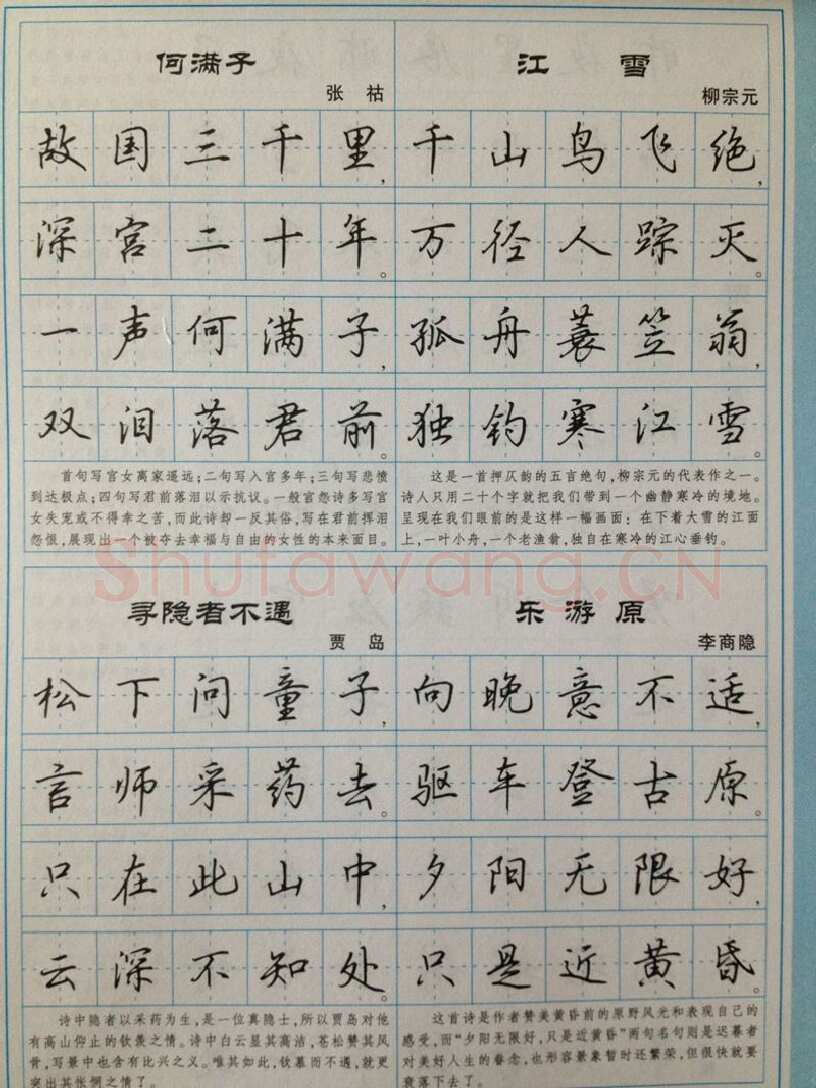 何满子
张 祜
故国三千里，
深宫二十年。
一声何满子，
双泪落君前。
首句写宫女离家遥远；二句写入宫多年；三句写悲愤
到达极点；四句写君前落泪以示抗议。一般宫怨诗多写宫
女失宠或不得幸之苦，而此诗却一反其俗，写在君前挥泪
怨恨，展现出一个被夺去幸福与自由的女性的本来面目。
江 雪
柳宗元
千山鸟飞绝，
万径人踪灭。
孤舟蓑笠翁，
独钓寒江雪。
这是一首押仄韵的五言绝句，柳宗元的代表作之一。
诗人只用二十个字就把我们带到一个幽静寒冷的境地。
呈现在我们眼前的是这样一幅画面：在下着大雪的江面
上，一叶小舟，一个老渔翁，独自在寒冷的江心垂钓。
Shufawang.CN
寻隐者不遇
贾 岛
松下问童子，
言师采药去。
只在此山中，
云深不知处。
诗中隐者以采药为生，是一位真隐士，所以贾岛对他
有高山仰止的钦羡之情。诗中白云显其高洁，苍松赞其风
骨，写景中也含有比兴之义。唯其如此，钦慕而不遇，就更
突出其怅惘之情了。
乐游原
李商隐
向晚意不适，
驱车登古原。
夕阳无限好，
只是近黄昏。
这首诗是作者赞美黄昏前的原野风光和表现自己的
感受，而“夕阳无限好，只是近黄昏”两句名句则是迟暮者
对美好人生的眷念，也形容景象暂时还繁荣，但很快就要
衰落下去了。